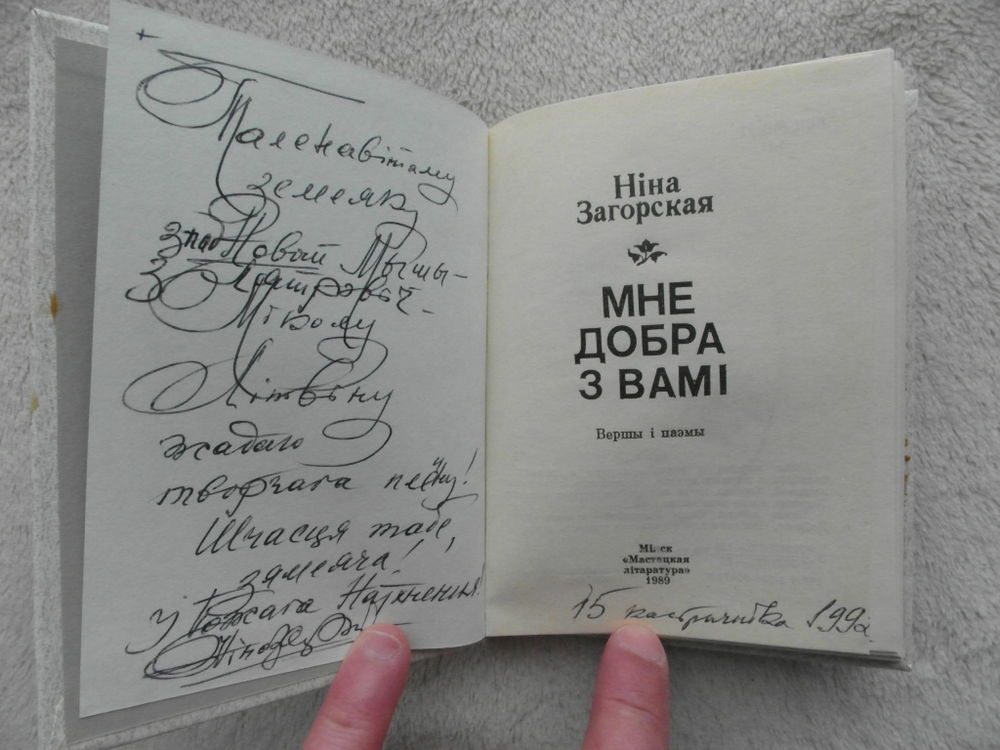 Таленавітаму
земляку
з пад Новай Мышы-
з
Міколу
Літвіну
жадаю
творчага плёну!
Шчасця табе,
зямляча!
і Божага Натхнення!
Ніна
Загорская
МНЕ
ДОБРА
З ВАМІ
Вершы і паэмы
Мінск
«Мастацкая
літаратура»
1989
15 кастрычніка 199